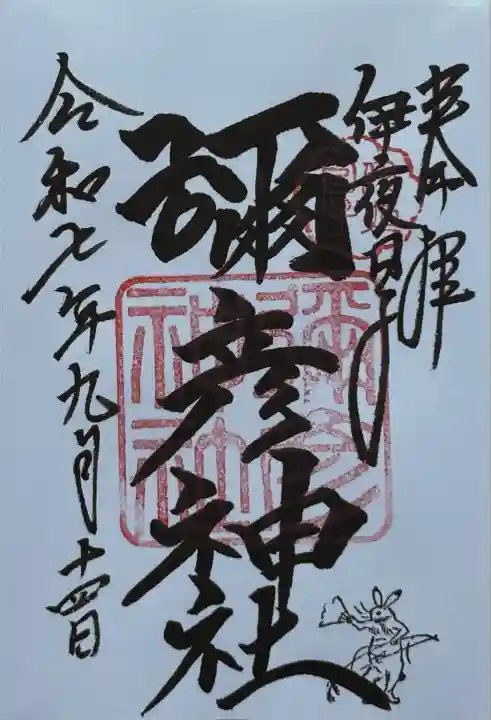 奉拝
伊夜日子
彌彦神社
彌彦神社
令和七年九月十四日